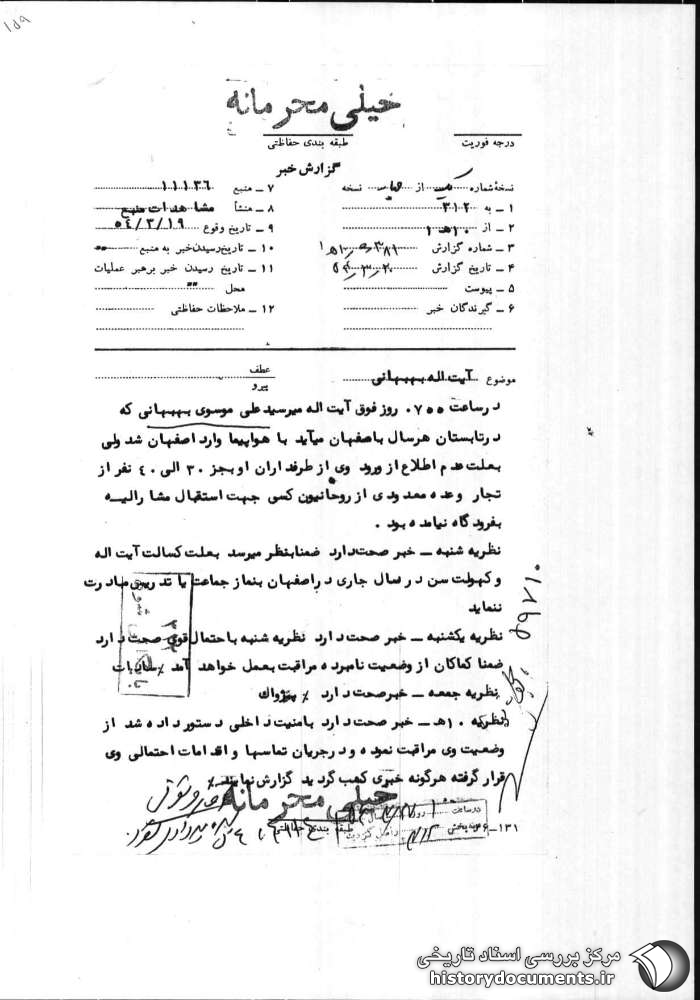 ۱۵۹
خیلی محرمانه
درجه فوریت
طبقه بندی حفاظتی
گزارش خبر
نسخهٔ شماره یک از نسخه
۱ ـ به ۳۱۲
۲ ـ از ۱۰هـ ۱
۳ ـ شماره گزارش
۴ ـ تاریخ گزارش
۵ ـ پیوست
۶ ـ گیرندگان خبر
۷ ـ منبع ۱۱۱۳۶
۸ ـ منشأ مشاهدات منبع
۹ ـ تاریخ وقوع ۵۴/۳/۱۹
۱۰ ـ تاریخ رسیدن خبر به منبع
۱۱ ـ تاریخ رسیدن خبر برهبر عملیات
محل
۱۲ ـ ملاحظات حفاظتی
موضوع آیت اله بهبهانی
عطف
پیرو
در ساعت ۰۷۵۵ روز فوق آیت اله میرسید علی موسوی بهبهانی که
در تابستان هر سال باصفهان میآید با هواپیما وارد اصفهان شد ولی
بعلت عدم اطلاع از ورود وی از طرفداران او بجز ۳۰ الی ۴۰ نفر از
تجار وعده معدودی از روحانیون کسی جهت استقبال مشارالیه
بفرودگاه نیامده بود .
نظریه شنبه ـ خبر صحت دارد ضمنا بنظر میرسد بعلت کسالت آیت اله
و کهولت سن در سال جاری در اصفهان بنماز جماعت یا تدریس مبادرت
ننماید
نظریه یکشنبه ـ خبر صحت دارد نظریه شنبه باحتمال قوی صحت دارد
ضمنا کماکان از وضعیت نامبرده مراقبت بعمل خواهد آمد
نظریه جمعه ـ خبر صحت دارد ٪ پژواك
نظریه ۱۰هـ ـ خبر صحت دارد بامنیت داخلی دستور داده شد از
وضعیت وی مراقبت نموده و در جریان تماسها و اقدامات احتمالی وی
قرار گرفته هرگونه خبری کسب گردید گزارش نمایند ٪
خیلی محرمانه
طبقه بندی حفاظتی
در ساعت روز
بخش واصل گردید
۱۳۱ـ۰۶
مرکز بررسی اسناد تاریخی
historydocuments.ir